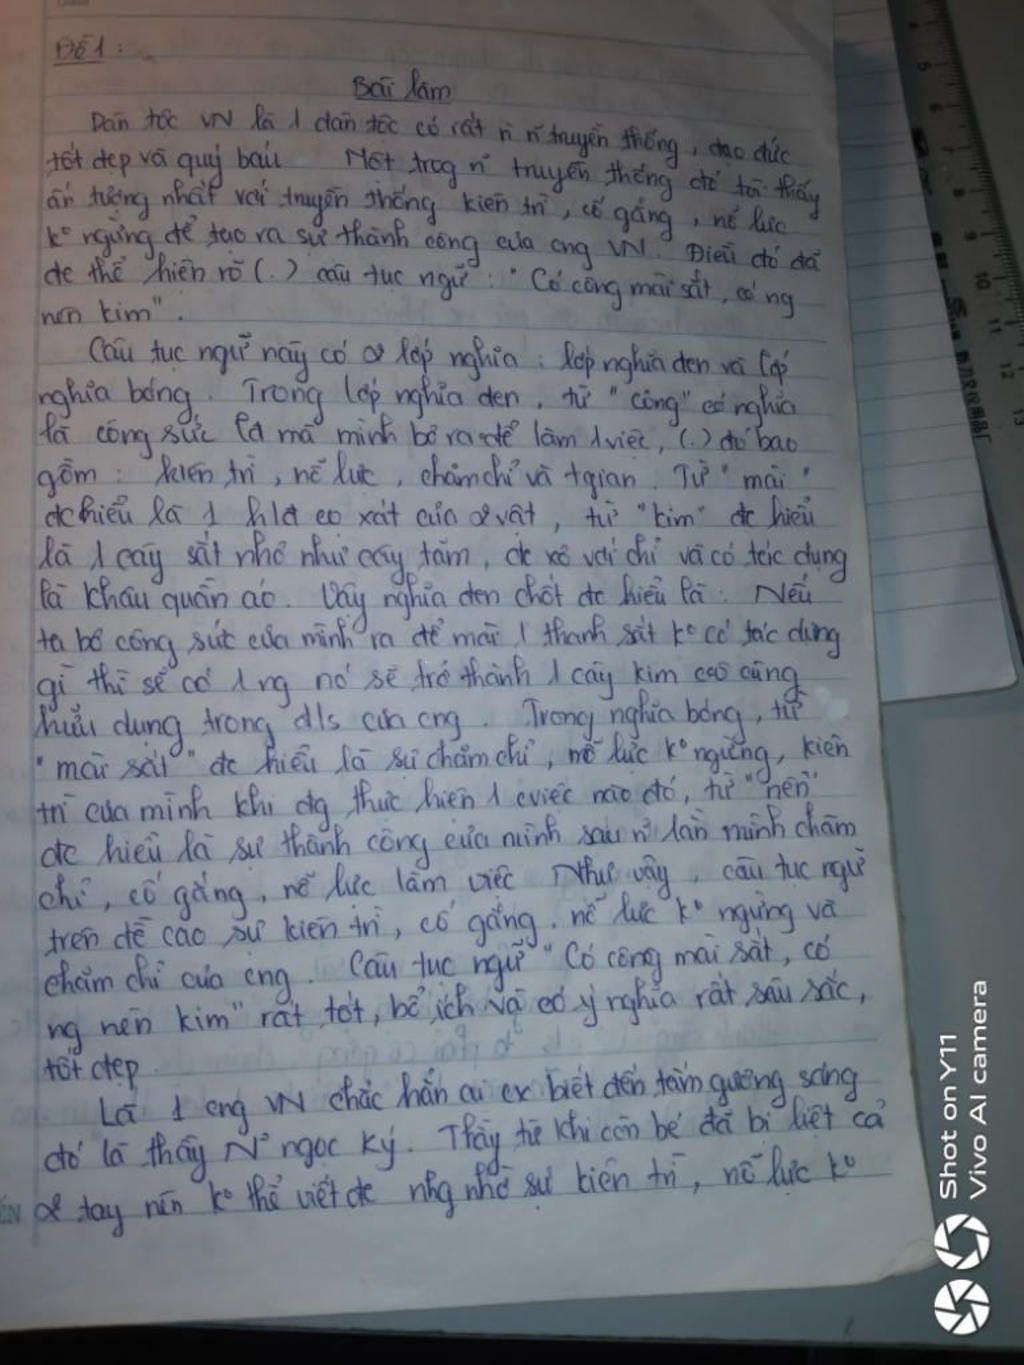 Đề 1 :
Bài làm
Dân tộc VN là 1 dân tộc có rất n` n~ truyền thống, đạo đức
tốt đẹp và quý báu. Một trog n~ truyền thống đó tôi thấy
ấn tượng nhất với truyền thống kiên trì, cố gắng, nỗ lực
kº ngừng để tạo ra sự thành công của cng VN. Điều đó đã
đc thể hiện rõ (.) câu tục ngữ : "Có công mài sắt, có ng
nên kim".
Câu tục ngữ này có 2 lớp nghĩa : lớp nghĩa đen và lớp
nghĩa bóng. Trong lớp nghĩa đen, từ "công" có nghĩa
là công sức lđ mà mình bỏ ra để làm 1 việc, (.) đó bao
gồm : kiên trì, nỗ lực, chăm chỉ và tgian. Từ "mài"
đc hiểu là 1 hđ cọ xát của 2 vật, từ "kim" đc hiểu
là 1 cây sắt nhỏ như cây tăm, đc xỏ với chỉ và có tác dụng
là khâu quần áo. Vậy nghĩa đen chốt đc hiểu là : Nếu
ta bỏ công sức của mình ra để mài 1 thanh sắt kº có tác dụng
gì thì sẽ có 1 ng nó sẽ trở thành 1 cây kim cùng
hữu dụng trong đ/s của cng. Trong nghĩa bóng, từ
"mài sắt" đc hiểu là sự chăm chỉ, nỗ lực kº ngừng, kiên
trì của mình khi đg thực hiện 1 cviệc nào đó, từ "nên"
đc hiểu là sự thành công của mình sau n` lần mình chăm
chỉ, cố gắng, nỗ lực làm việc. Như vậy, câu tục ngữ
trên đề cao sự kiên trì, cố gắng, nỗ lực kº ngừng và
chăm chỉ của cng. Câu tục ngữ "Có công mài sắt, có
ng nên kim" rất tốt, bổ ích và có ý nghĩa rất sâu sắc,
tốt đẹp.
Là 1 cng VN chắc hẳn ai cx biết đến tấm gương sáng
đó là thầy Nº Ngọc Ký. Thầy từ khi còn bé đã bị liệt cả
2 tay nên kº thể viết đc nhg nhờ sự kiên trì, nỗ lực kº
Shot on Y11
Vivo AI camera